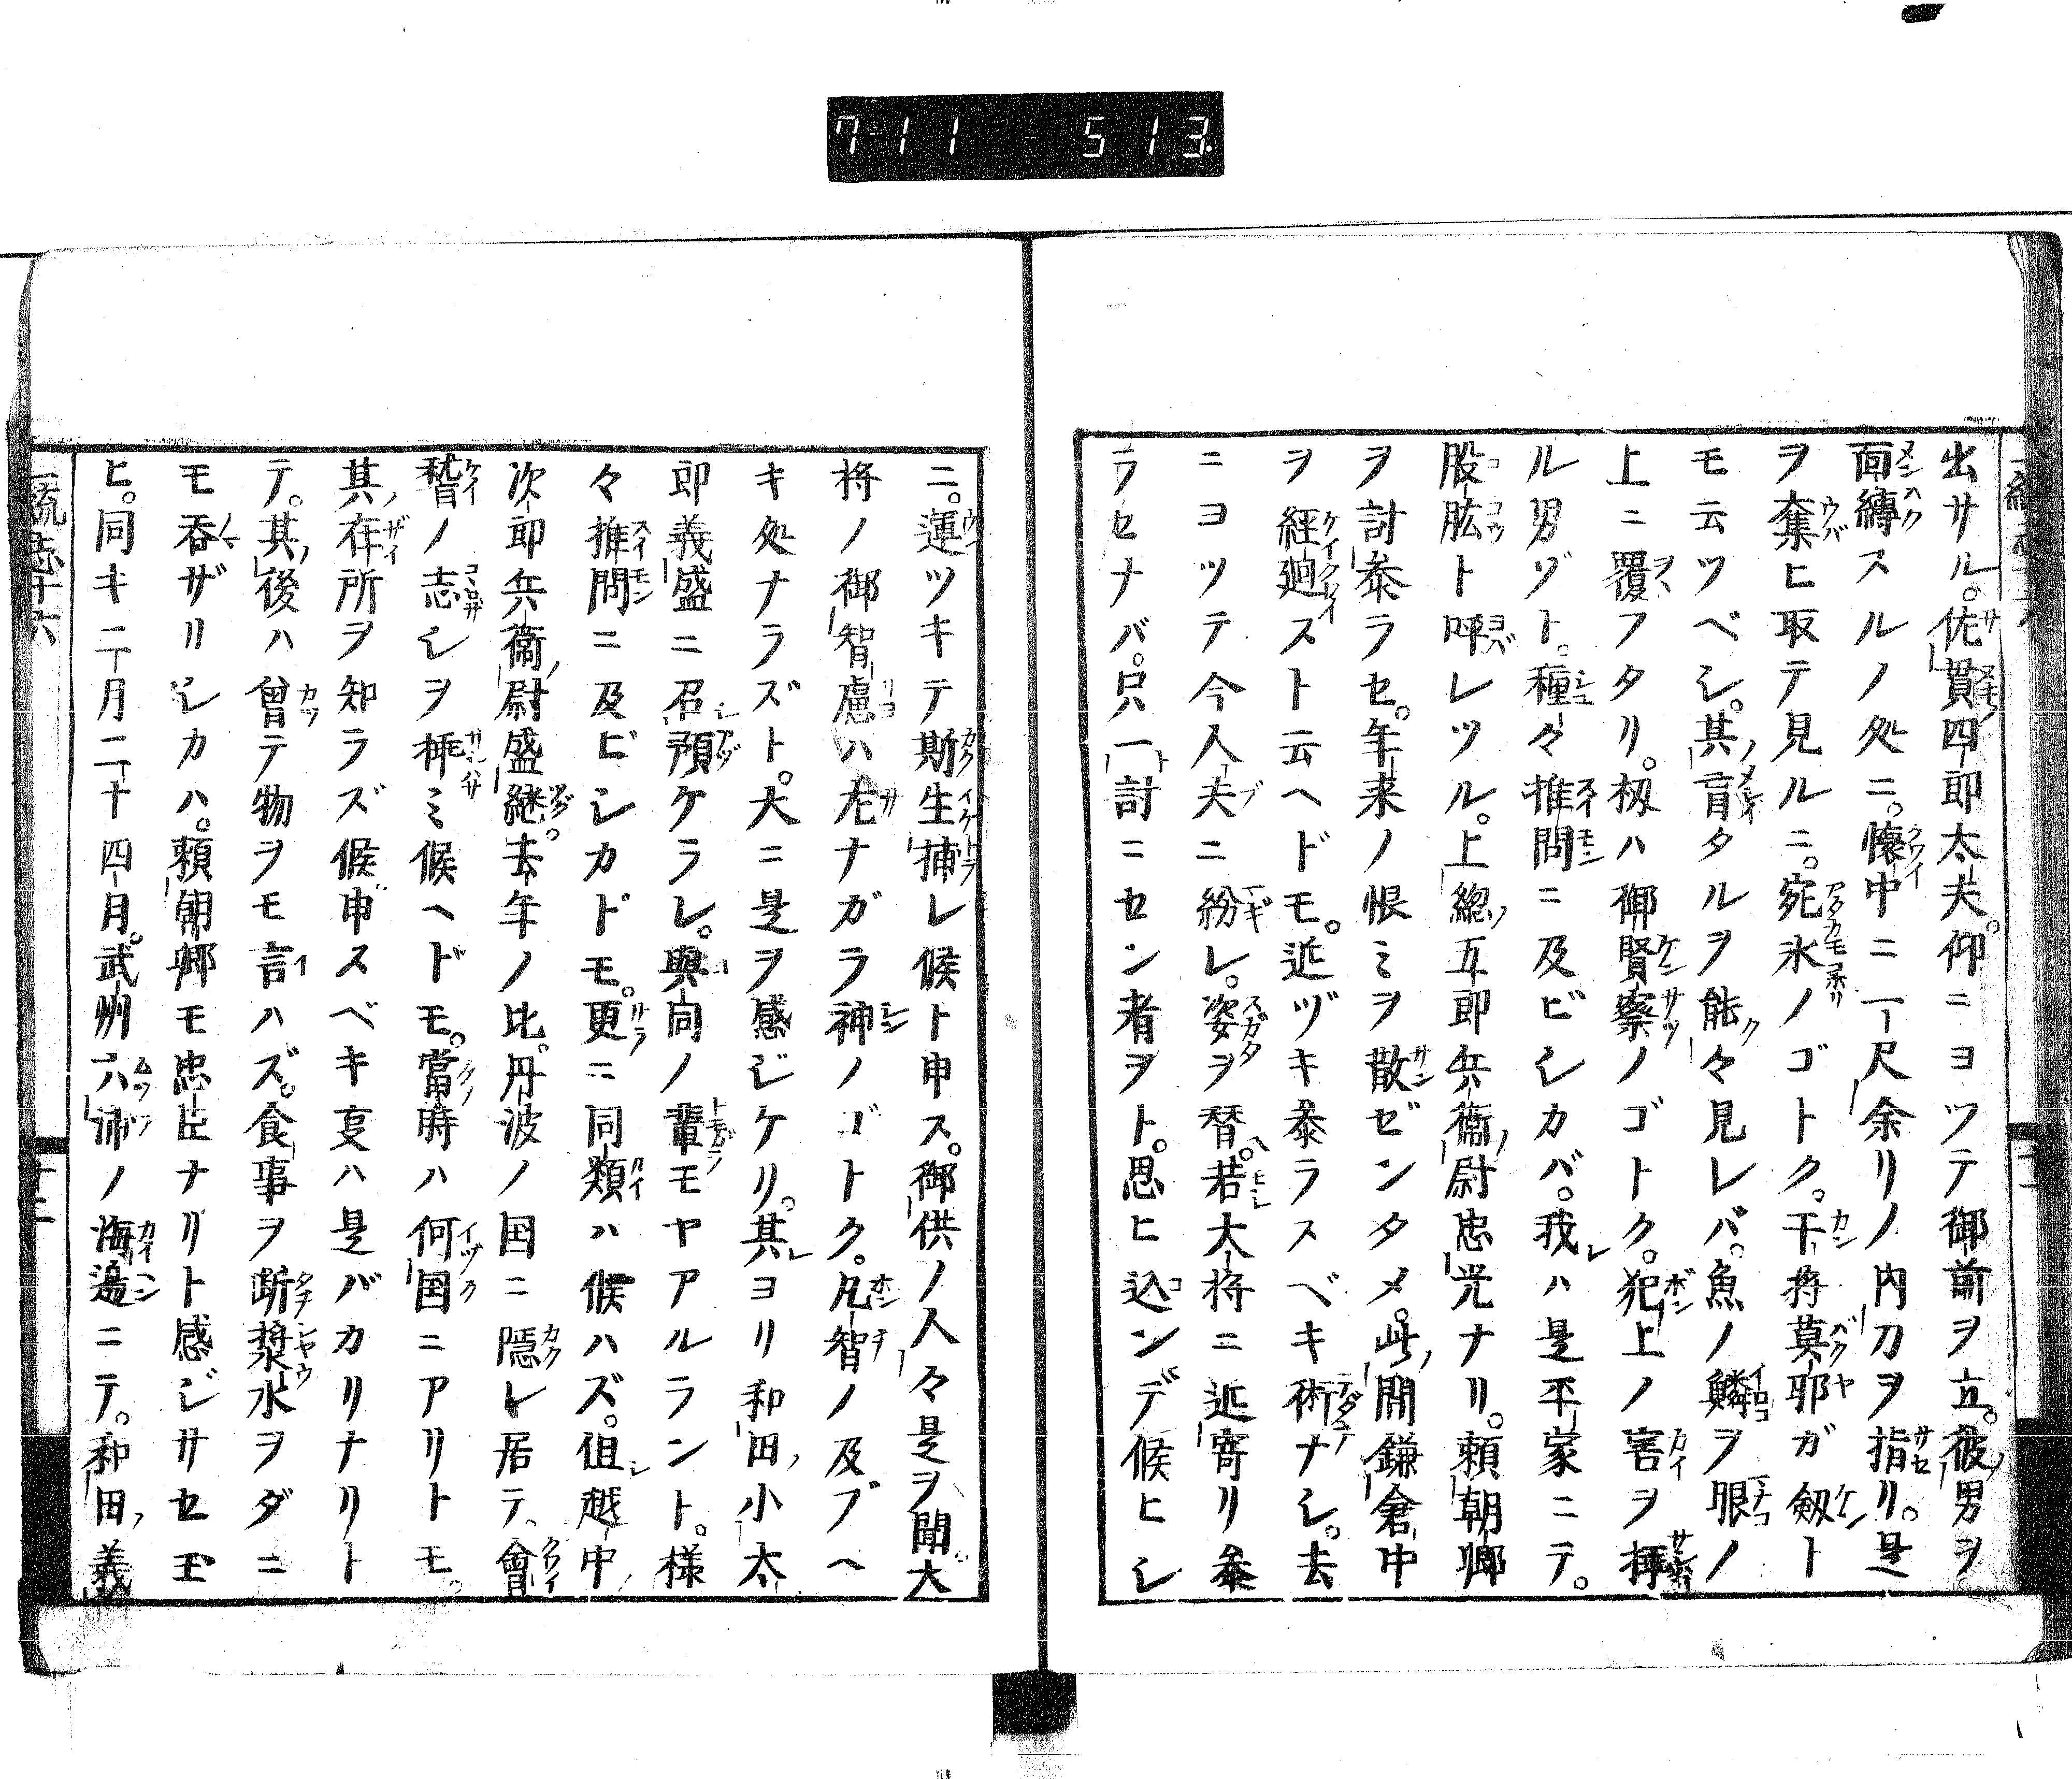 711 513
出サル。佐貫四郎太夫。仰ニヨツテ御前ヲ立。彼男ヲ。
面縛スルノ処ニ。懐中ニ一尺余リノ内刀ヲ指リ。是
ヲ奪ヒ取テ見ルニ。宛氷ノゴトク。干将莫耶ガ剱ト
モ云ツベシ。其盲タルヲ能々見レバ。魚ノ鱗ヲ眼ノ
上ニ覆フタリ。扨ハ御賢察ノゴトク。犯上ノ害ヲ挿
ル男ゾト。種々推問ニ及ビシカバ。我ハ是平家ニテ。
股肱ト呼レツル。上総五郎兵衞尉忠光ナリ。頼朝卿
ヲ討泰ラセ。年来ノ恨ミヲ散ゼンタメ。此間鎌倉中
ヲ経廻ストト云ヘドモ。近ヅキ泰ラスベキ術ナシ。去
ニヨツテ今人夫ニ紛レ。姿ヲ替。若大将ニ近寄リ泰
ラセナバ。只一討ニセン者ヲト。思ヒ込ンデ候ヒシ
ニ。運ツキテ斯生捕レ候ト申ス。御供ノ人々是ヲ聞。大
将ノ御智慮ハ左ナガラ神ノゴトク。凡智ノ及ブヘ
キ処ナラズト。大ニ是ヲ感ジケリ。其ヨリ和田小太
郎義盛ニ召預ケラレ。與同ノ輩モヤアルラント。様
々推問ニ及ビシカドモ。更ニ同類ハ候ハズ。但越中
次郎兵衞尉盛継。去年ノ比。丹波ノ国ニ隠レ居テ、會
稽ノ志シヲ挿ミ候ヘドモ。當時ハ何国ニアリトモ。
其在所ヲ知ラズ候。申スベキ㕝ハ是バカリナリト
テ。其後ハ曾テ物ヲモ言ハズ。食事ヲ断漿水ヲダニ
モ呑ザリシカハ。頼朝卿モ忠臣ナリト感ジサセ玉
ヒ。同キ二月二十四月。武州六浦ノ海邉ニテ。和田義